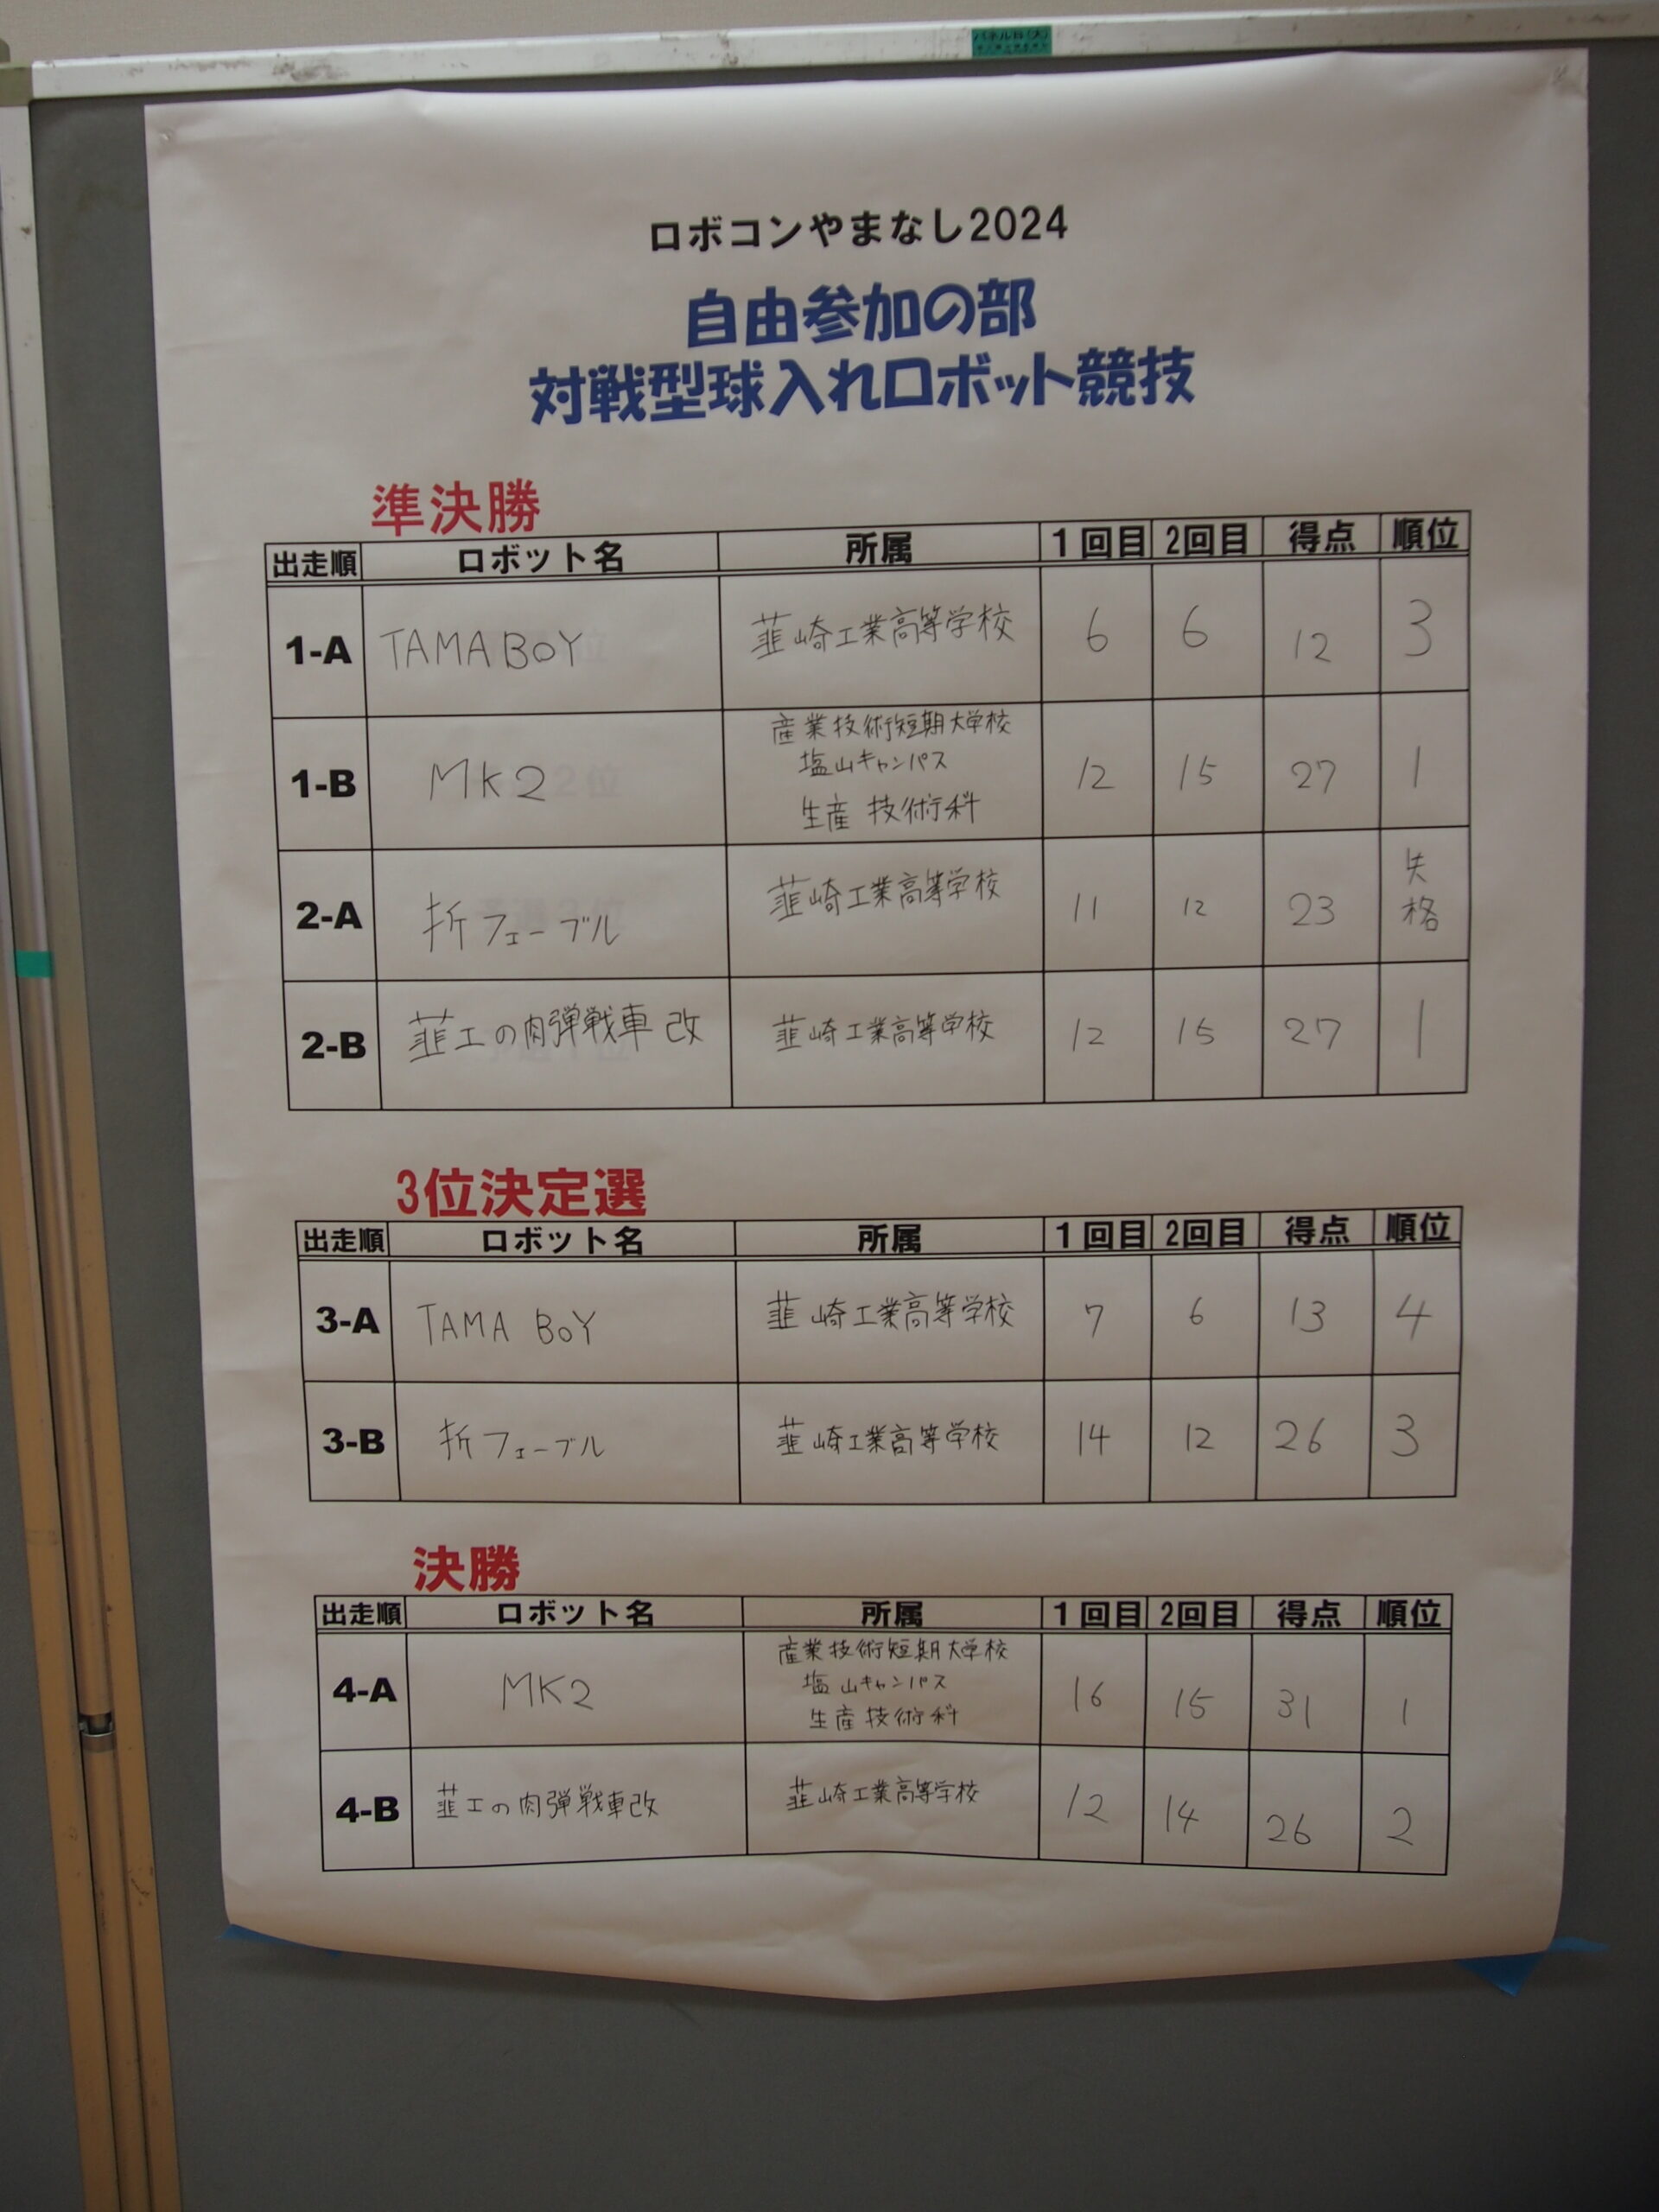 パネルB(大)
ロボコンやまなし2024
自由参加の部
対戦型球入れロボット競技
準決勝
出走順 ロボット名 所属 1回目 2回目 得点 順位
1-A TAMA BOY 韮崎工業高等学校 6 6 12 3
1-B MK2 産業技術短期大学校 12 15 27 1
塩山キャンパス
生産技術科
2-A 折フェーブル 韮崎工業高等学校 11 12 23 失格
2-B 韮工の肉弾戦車 改 韮崎工業高等学校 12 15 27 1
3位決定選
出走順 ロボット名 所属 1回目 2回目 得点 順位
3-A TAMA BOY 韮崎工業高等学校 7 6 13 4
3-B 折フェーブル 韮崎工業高等学校 14 12 26 3
決勝
出走順 ロボット名 所属 1回目 2回目 得点 順位
4-A MK2 産業技術短期大学校 16 15 31 1
塩山キャンパス
生産技術科
4-B 韮工の肉弾戦車改 韮崎工業高等学校 12 14 26 2